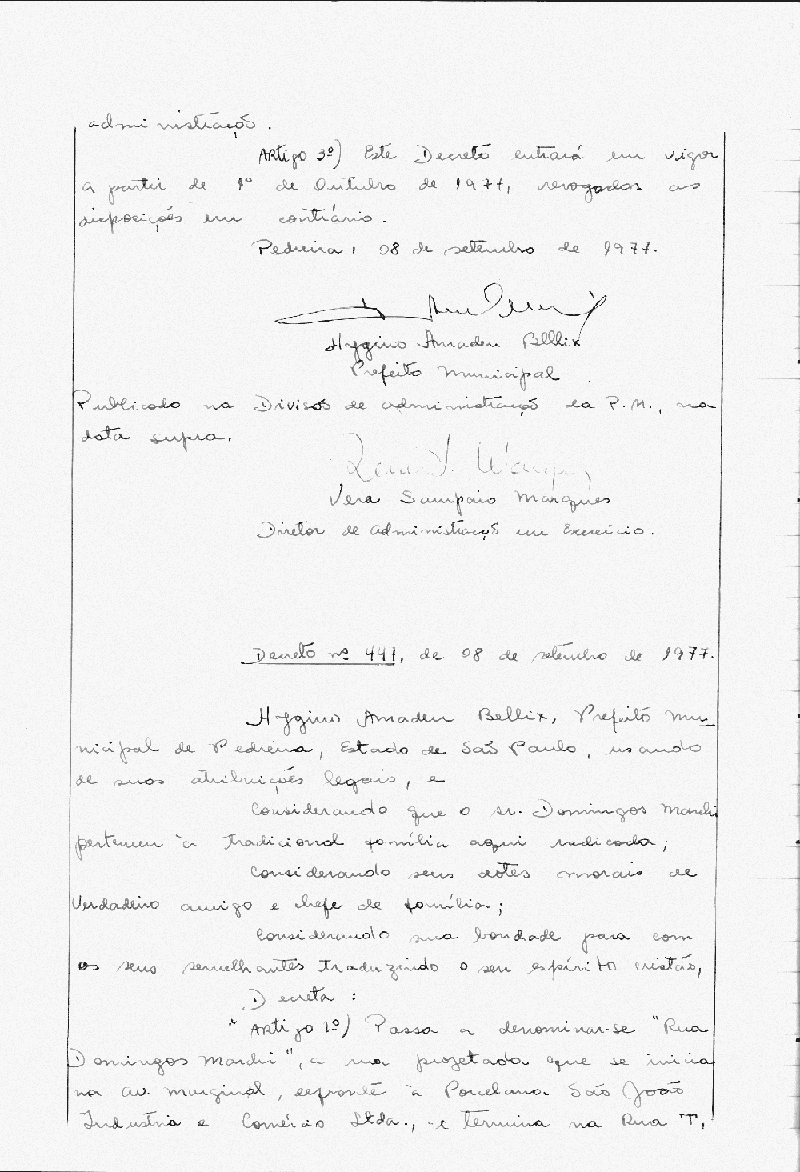 administração.
Artigo 3º) Este Decreto entrará em vigor
a partir de 1º de Outubro de 1977, revogadas as
disposições em contrário.
Pedreira, 08 de setembro de 1977.
Hygino Amadeu Bellix
Prefeito Municipal
Publicado na Divisão de administração da P.M., na
data supra.
Vera Sampaio Marques
Diretor de Administração em Exercício.
Decreto nº 441, de 08 de setembro de 1977.
Hygino Amadeu Bellix, Prefeito Mu-
nicipal de Pedreira, Estado de São Paulo, usando
de suas atribuições legais, e
Considerando que o sr. Domingos Marchi
pertenceu à tradicional família aqui radicada;
Considerando seus dotes morais de
verdadeiro amigo e chefe de família;
Considerando sua bondade para com
os seus semelhantes traduzindo o seu espírito cristão,
Decreta:
Artigo 1º) Passa a denominar-se "Rua
Domingos Marchi", a rua projetada que se inicia
na av. marginal, defronte à Porcelana São João
Industria e Comércio Ltda., e termina na Rua T,